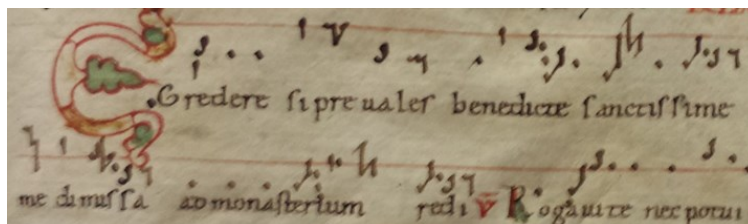 Egredere si preuales benedicte sanctissime
me dimissa ad monasterium redi V Rogaui te nec potui